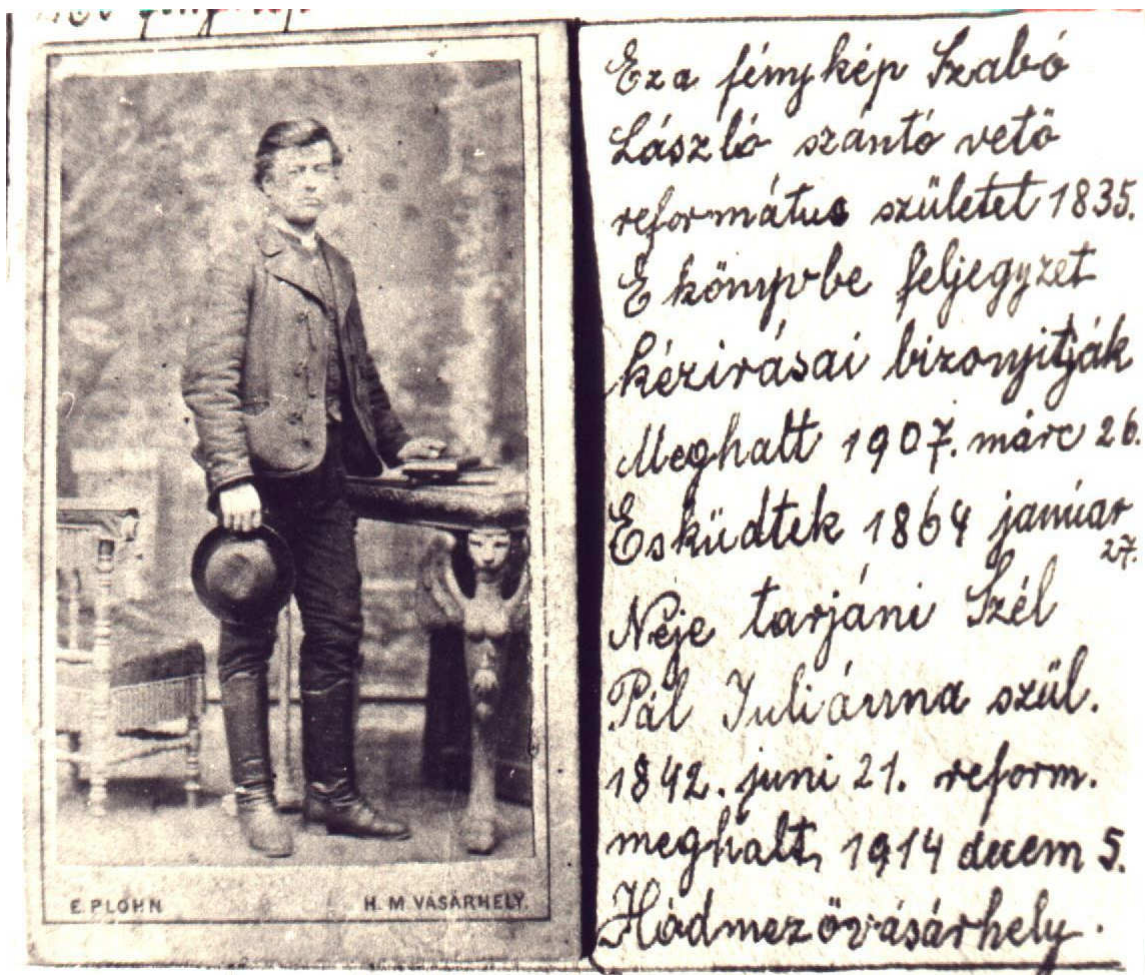 E. PLOHN
H. M VÁSÁRHELY.
Eza fénykép Szabó
László szántó vető
református születet 1835.
E könyvbe feljegyzet
kézirásai bizonyitják
Meghalt 1907. márc 26.
Esküdtek 1864 január
27.
Néje tarjáni Szél
Pál Juliánna szül.
1842. juni 21. reform.
meghalt, 1914 decem 5.
Hódmezővásárhely.